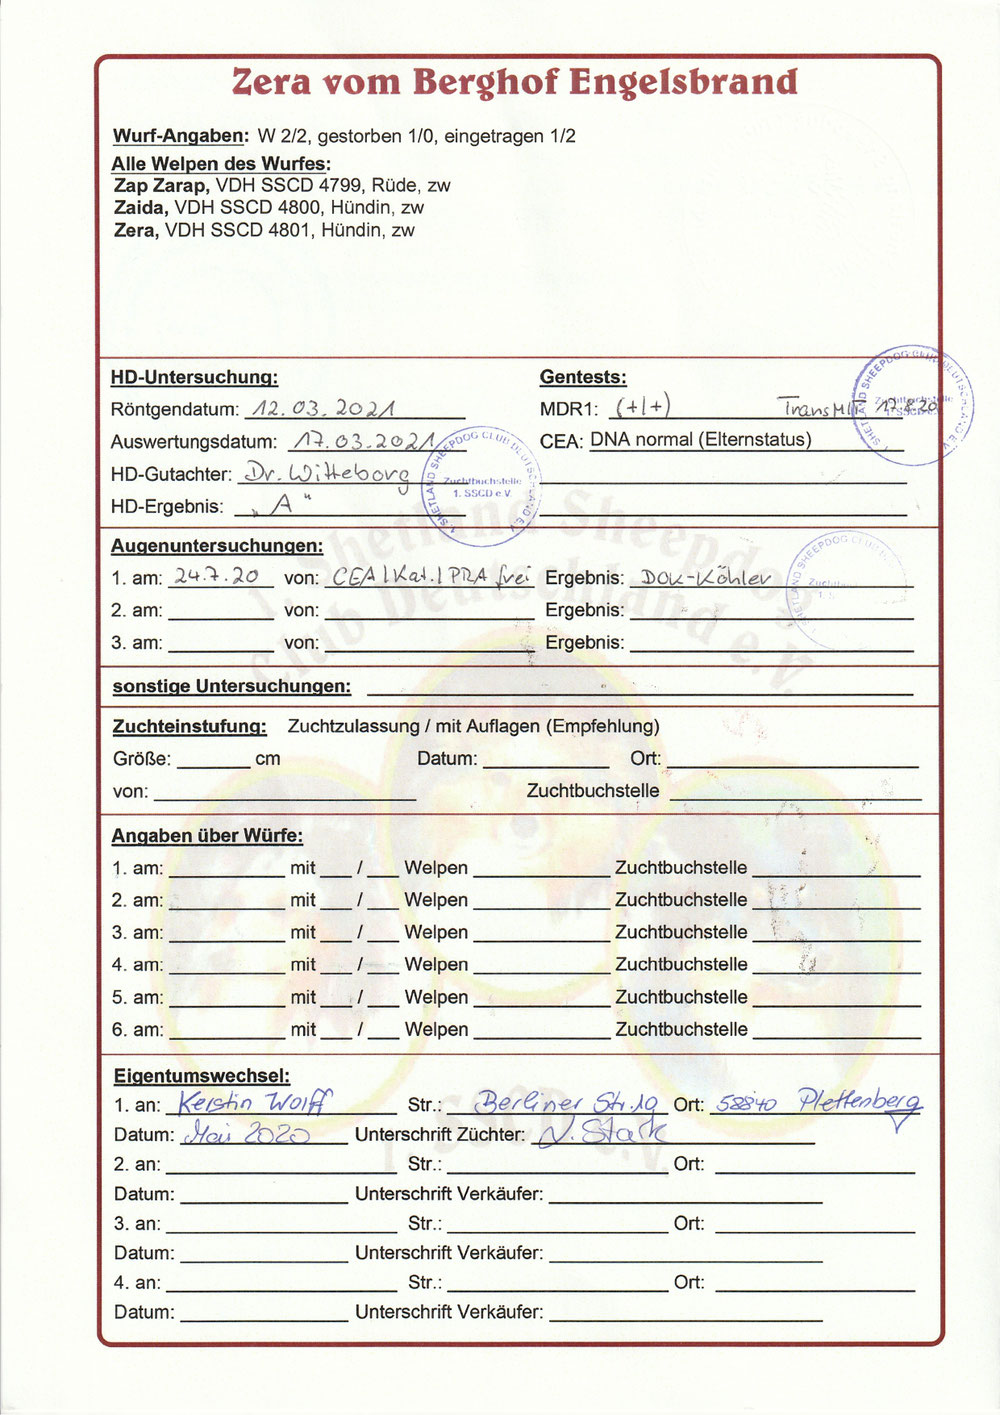 Zera vom Berghof Engelsbrand
Wurf-Angaben: W 2/2, gestorben 1/0, eingetragen 1/2
Alle Welpen des Wurfes:
Zap Zarap, VDH SSCD 4799, Rüde, zw
Zaida, VDH SSCD 4800, Hündin, zw
Zera, VDH SSCD 4801, Hündin, zw
HD-Untersuchung: Gentests:
Röntgendatum: 12.03.2021 MDR1: (+/+) TransMIT 17.8.20
Auswertungsdatum: 17.03.2021 CEA: DNA normal (Elternstatus)
HD-Gutachter: Dr. Witteborg
HD-Ergebnis: „A“
1. SHETLAND SHEEPDOG CLUB DEUTSCHLAND E.V.
Zuchtbuchstelle
1. SSCD e.V.
1. SHETLAND SHEEPDOG CLUB DEUTSCHLAND E.V.
Zuchtbuchstelle
1. SSCD e.V.
1. Shetland Sheepdog
Club Deutschland e.V.
Augenuntersuchungen:
1. am: 24.7.20 von: CEA/Kat./PRA frei Ergebnis: DOK-Köhler
SHETLAND SHEEPDOG CLUB
2. am: von: Ergebnis:
3. am: von: Ergebnis:
sonstige Untersuchungen:
Zuchteinstufung: Zuchtzulassung / mit Auflagen (Empfehlung)
Größe: cm Datum: Ort:
von: Zuchtbuchstelle
Angaben über Würfe:
1. am: mit / Welpen Zuchtbuchstelle
2. am: mit / Welpen Zuchtbuchstelle
3. am: mit / Welpen Zuchtbuchstelle
4. am: mit / Welpen Zuchtbuchstelle
5. am: mit / Welpen Zuchtbuchstelle
6. am: mit / Welpen Zuchtbuchstelle
Eigentumswechsel:
1. an: Kerstin Wolff Str.: Berliner Str. 19 Ort: 58840 Plettenberg
Datum: Mai 2020 Unterschrift Züchter: N. Stark
1. SSCD e.V.
2. an: Str.: Ort:
Datum: Unterschrift Verkäufer:
3. an: Str.: Ort:
Datum: Unterschrift Verkäufer:
4. an: Str.: Ort:
Datum: Unterschrift Verkäufer: